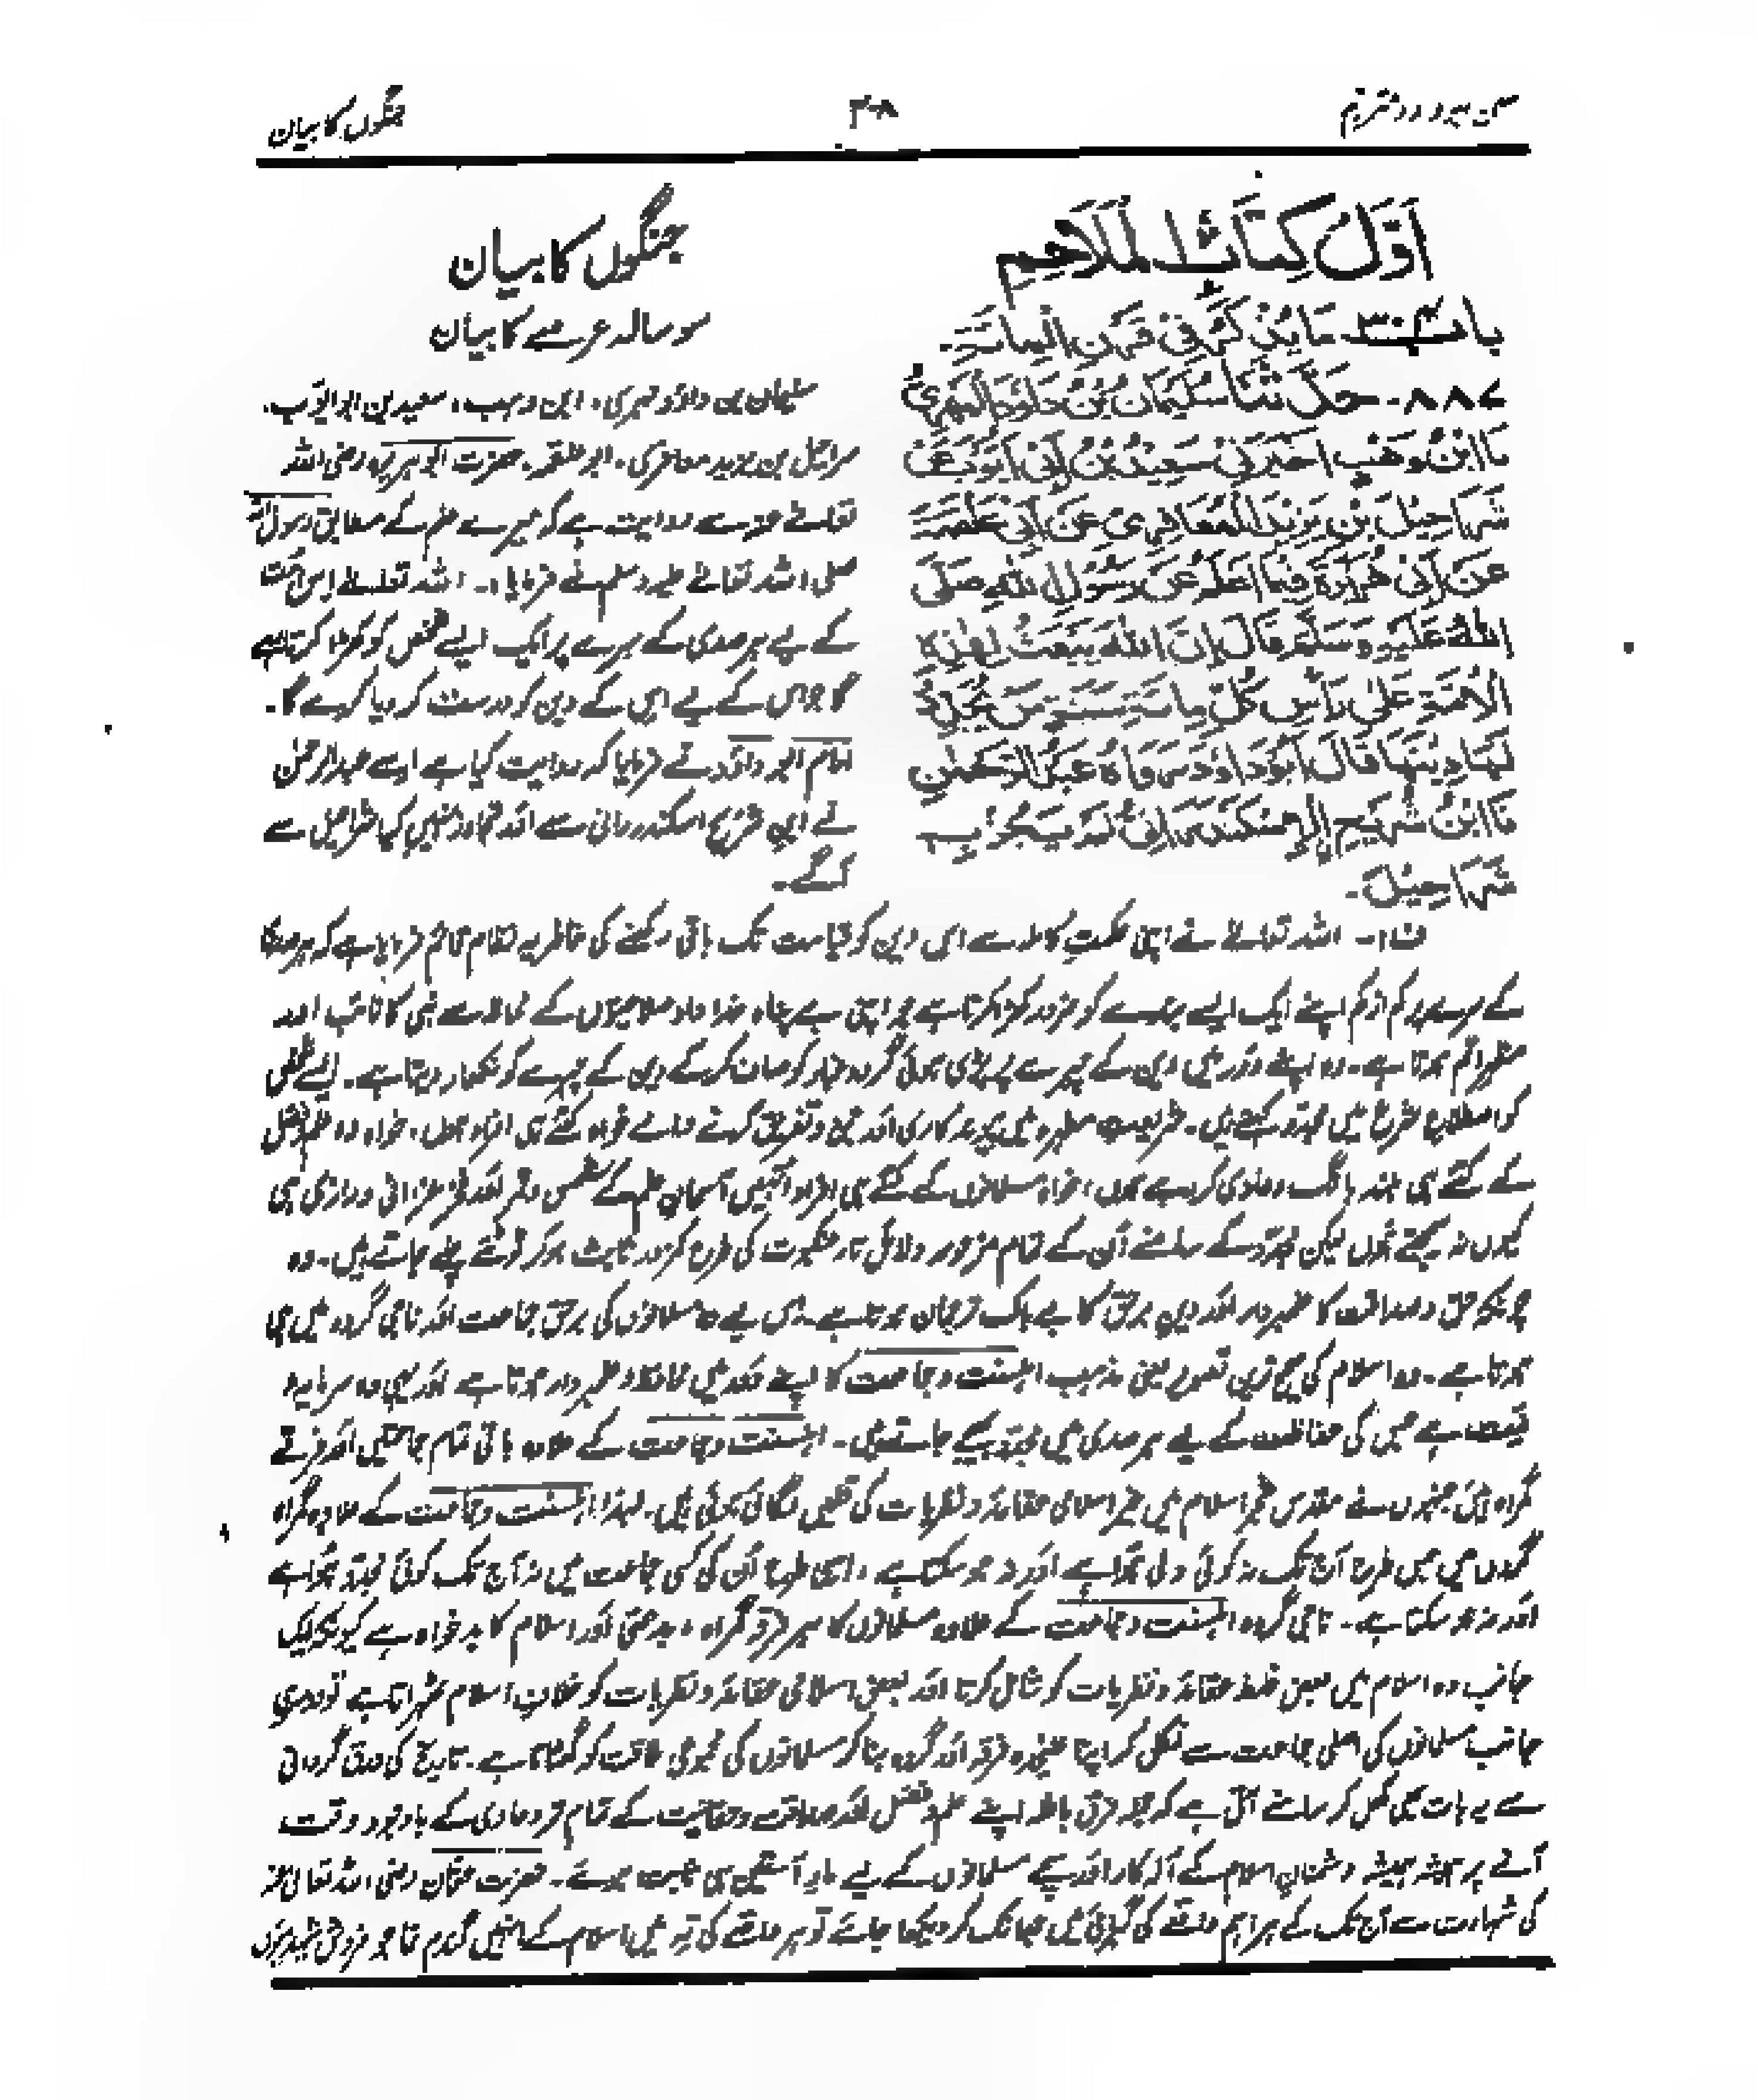 جنگوں کا بیان
اَوَّلُ كِتَابُ الْمَلَاحِمِ
بابٌ مَا يُذْكَرُ فِيْ قَرْنِ الْمِائَةِ
۸۸۷۔ حَدَّثَنَا سُلَيْمَانُ بْنُ دَاوُدَ الْمَهْرِيُّ
نَا ابْنُ وَهْبٍ اَخْبَرَنِيْ سَعِيْدُ بْنُ اَبِيْ اَيُّوْبَ عَنْ
شَرَاحِيْلَ بْنِ يَزِيْدَ الْمُعَافِرِيِّ عَنْ اَبِيْ عَلْقَمَةَ
عَنْ اَبِيْ هُرَيْرَةَ فِيْمَا اَعْلَمُ عَنْ رَسُوْلِ اللّٰهِ صَلَّى
اللّٰهُ عَلَيْهِ وَسَلَّمَ قَالَ اِنَّ اللّٰهَ يَبْعَثُ لِهٰذِهِ
الْاُمَّةِ عَلٰى رَأْسِ كُلِّ مِائَةِ سَنَةٍ مَنْ يُجَدِّدُ
لَهَا دِيْنَهَا قَالَ اَبُوْ دَاوُدَ رَوَاهُ عَبْدُ الرَّحْمٰنِ
نَا ابْنُ شُرَيْحٍ الْاِسْكَنْدَرَانِيُّ لَمْ يَجُزْ بِهِ
شَرَاحِيْلَ۔
جنگوں کا بیان
سو سالہ عرصے کا بیان
سلیمان بن داؤد مہری، ابن وہب، سعید بن ابو ایوب،
شراحیل بن یزید معافری، ابو علقمہ، حضرت ابو ہریرہ رضی اللہ
تعالےٰ عنہ سے روایت ہے کہ میرے علم کے مطابق رسول اللہ
صلی اللہ تعالےٰ علیہ وسلم نے فرمایا:۔ اللہ تعالےٰ اس امت
کے لیے ہر صدی کے سرے پر ایک ایسے شخص کو کھڑا کرتا رہے
گا جو اس کے لیے اس کے دین کو درست کر دیا کرے گا۔
امام ابو داؤد نے فرمایا کہ روایت کیا ہے اسے عبد الرحمٰن
نے ابن شریح اسکندرانی سے اور تجاوز نہیں کیا شراحیل سے
آگے۔
ف:۔ اللہ تعالےٰ نے اپنی حکمتِ کاملہ سے اس دین کو قیامت تک باقی رکھنے کی خاطر یہ نظام قائم فرمایا ہے کہ ہر صدی
کے سرے پر کم از کم اپنے ایک ایسے بندے کو ضرور کھڑا کرتا ہے جو اپنی بے پناہ خداداد صلاحیتوں کے لحاظ سے نبی کا نائب اور
مظہر اتم ہوتا ہے۔ وہ اپنے دور میں دین کے چہرے پر پڑی ہوئی گرد و غبار کو صاف کر کے دین کے چہرے کو نکھار دیتا ہے۔ ایسے شخص
کو اصطلاحِ شرع میں مجدد کہتے ہیں۔ شریعتِ مطہرہ میں پیوند کاری اور جمع و تفریق کرنے والے خواہ کتنے ہی افراد ہوں، خواہ وہ علم و فضل
کے کتنے ہی بلند بانگ دعاوی کر رہے ہوں، خواہ مسلمانوں کے کتنے ہی افراد انہیں آسمانِ علم کے شمس و قمر اور فخرِ غزالی و رازی ہی
کیوں نہ سمجھتے ہوں لیکن مجدد کے سامنے اُن کے تمام مزعومہ دلائل تارِ عنکبوت کی طرح کمزور ثابت ہو کر ٹوٹتے چلے جاتے ہیں۔ وہ
چونکہ حق و صداقت کا علمبردار اور دینِ برحق کا بے باک ترجمان ہوتا ہے۔ اس لیے وہ مسلمانوں کی برحق جماعت اور ناجی گروہ میں ہی
ہوتا ہے۔ وہ اسلام کی صحیح ترین تصویر یعنی مذہب اہلسنت و جماعت کا اپنے دور میں محافظ و علمبردار ہوتا ہے اور یہی وہ سرمایہ
ہے جس کی حفاظت کے لیے ہر صدی میں مجدد بھیجے جاتے ہیں۔ اہلسنت و جماعت کے علاوہ باقی تمام جماعتیں اور فرقے
گمراہ ہیں جنہوں نے مقدس شجرِ اسلام میں غیر اسلامی عقائد و نظریات کی قلمیں لگائی ہوئی ہیں۔ لہٰذا اہلسنت و جماعت کے علاوہ گمراہ
گروہوں میں جس طرح آج تک نہ کوئی ولی ہوا ہے اور نہ ہو سکتا ہے، اسی طرح اُن کی کسی جماعت میں نہ آج تک کوئی مجدد ہوا ہے
اور نہ ہو سکتا ہے۔ ناجی گروہ اہلسنت و جماعت کے علاوہ مسلمانوں کا ہر فرقہ گمراہ، بدعتی اور اسلام کا بدخواہ ہے کیونکہ ایک
جانب وہ اسلام میں بعض غلط عقائد و نظریات کو شامل کرتا اور بعض اسلامی عقائد و نظریات کو خلافِ اسلام ٹھہراتا ہے تو دوسری
جانب مسلمانوں کی اصلی جماعت سے نکل کر اپنا علیحدہ فرقہ اور گروہ بنا کر مسلمانوں کی مجموعی طاقت کو گھٹاتا ہے۔ تاریخ کی ورق گردانی
سے یہ بات بھی کھل کر سامنے آتی ہے کہ جملہ فرقِ باطلہ اپنے علم و فضل اور صداقت و حقانیت کے تمام تر دعاوی کے باوجود وقت
آنے پر ہمیشہ دشمنانِ اسلام کے آلۂ کار اور سچے مسلمانوں کے لیے مارِ آستین ہی ثابت ہوئے۔ حضرت عثمان رضی اللہ تعالیٰ عنہ
کی شہادت سے آج تک کے ہر اہم واقعے کی گہرائی میں جھانک کر دیکھا جائے تو ہر واقعے کی تہ میں اسلام کے انہیں گندم نما جو فروش